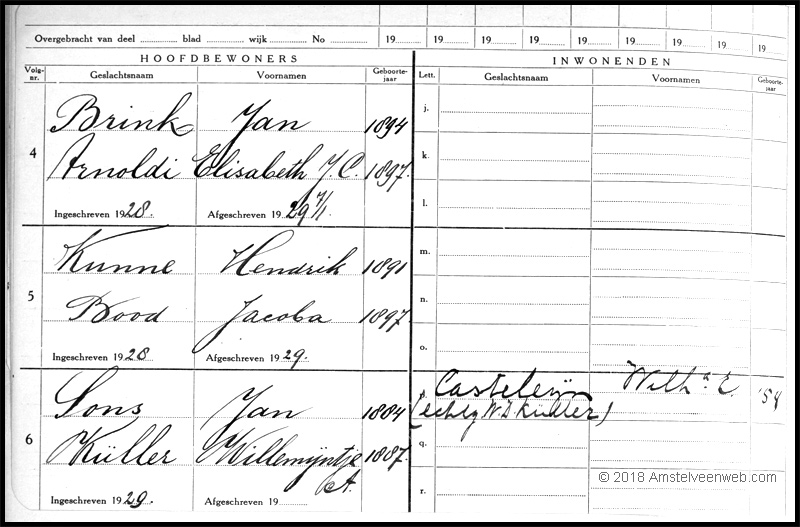 Overgebracht van deel blad wijk No 19 19 19 19 19 19 19 19 19
HOOFDBEWONERS INWONENDEN
Volg-nr. Geslachtsnaam Voornamen Geboorte-jaar Lett. Geslachtsnaam Voornamen Geboorte-jaar
Brink Jan 1894 j.
4
Arnoldi Elisabeth J. C. 1897. k.
Ingeschreven 1928. Afgeschreven 1929 7/1 l.
Kunne Hendrik 1891 m.
5
Bood Jacoba 1897. n.
Ingeschreven 1928 Afgeschreven 1929. o.
Sons Jan 1884 Casteleijn Wilh.a C.
6
(echtg W.D. Küller)
Küller Willemijntje 1887. q.
A.
Ingeschreven 1929. Afgeschreven 19 r.
© 2018 Amstelveenweb.com